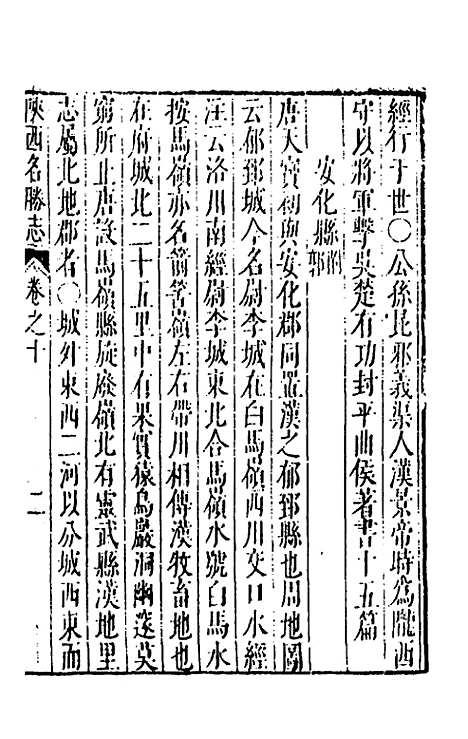 經行于世〇公孫昆邪義渠人漢景帝時為隴西
守以將軍擊吳楚有功封平曲侯著書十五篇
安化縣附郭
唐天寶初與安化郡同置漢之郁郅縣也周地圖
云郁郅城今名尉李城在白馬嶺西川交口水經
注云洛川南經尉李城東北合馬嶺水號白馬水
按馬嶺亦名箭筈嶺左右帶川相傳漢牧畜地也
在府城北二十五里中有果實猿鳥巖洞幽邃莫
窮所止唐設馬嶺縣旋廢嶺北有靈武縣漢地里
志屬北地郡名〇城外東西二河以分城西東而
陝西名勝志 卷之十 二